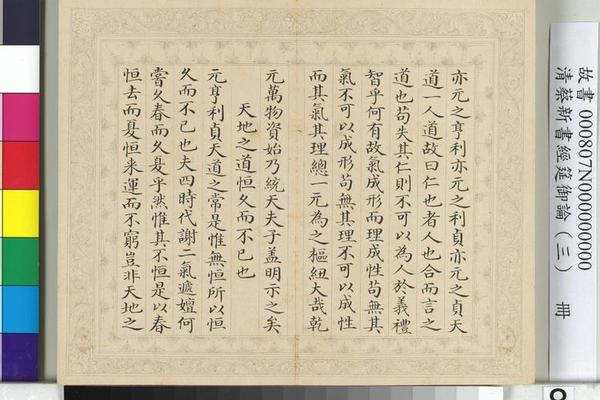 亦元之亨利亦元之利貞亦元之貞天
道一人道故曰仁也者人也合而言之
道也苟失其仁則不可以為人於義禮
智乎何有故氣成形而理成性苟無其
氣不可以成形苟無其理不可以成性
而其氣其理總一元為之樞紐大哉乾
元萬物資始乃統天夫子蓋明示之矣
天地之道恒久而不已也
元亨利貞天道之常是惟無恒所以恒
久而不已也夫四時代謝二氣遞嬗何
嘗久春而久夏乎然惟其不恒是以春
恒去而夏恒来運而不窮豈非天地之
故書 000807N000000000
清蔡新書經筵御論（三） 冊